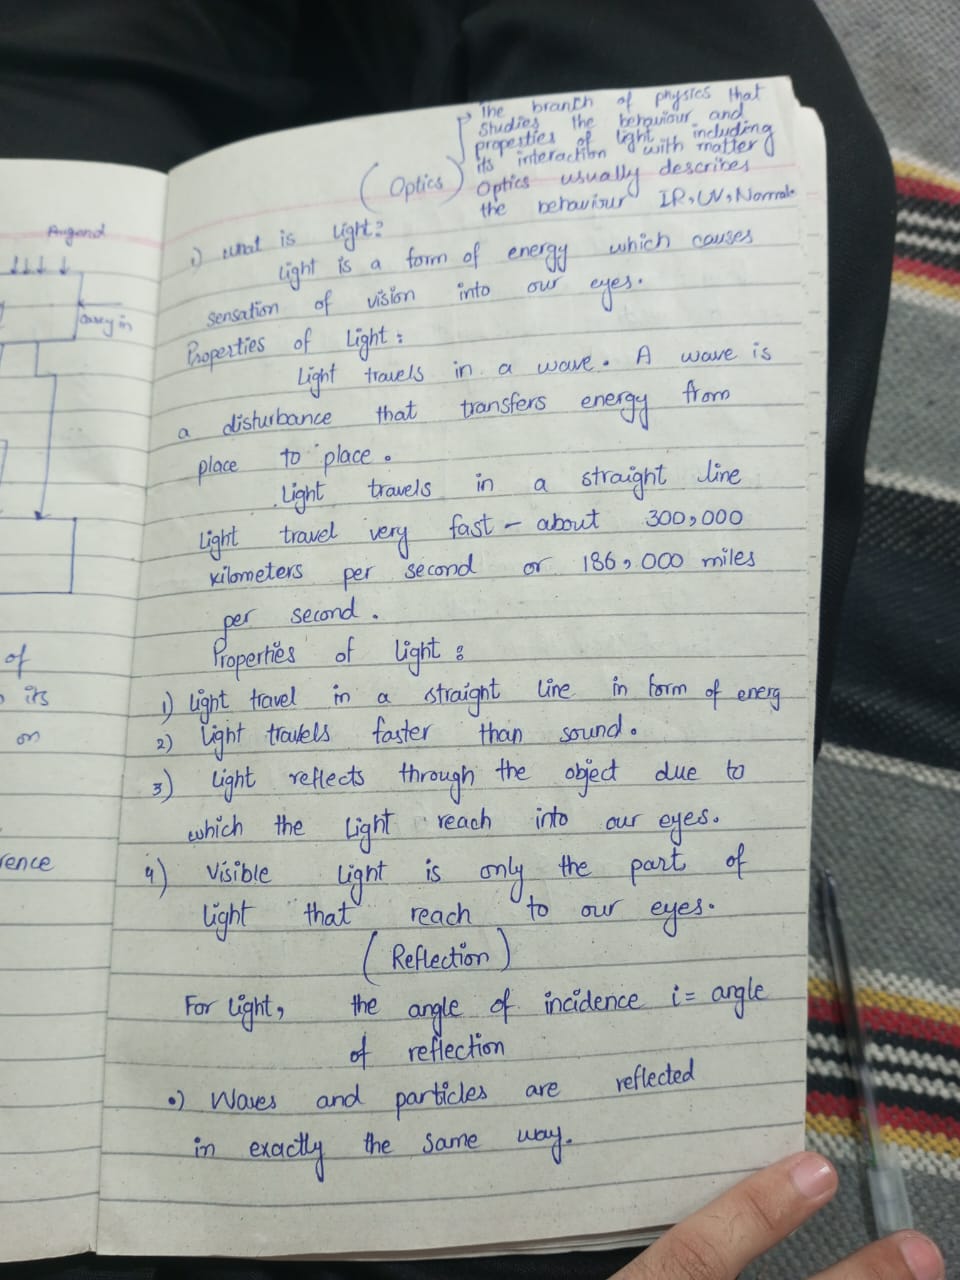 Augend
Carry in
of
its
on
rence
The branch of physics that
studies the behaviour and
properties of light including
its interaction with matter
(Optics) Optics usually describes
the behaviour IR, UV, Normal.
1) What is light?
Light is a form of energy which causes
sensation of vision into our eyes.
Properties of Light :
Light travels in a wave. A wave is
a disturbance that transfers energy from
place to place.
Light travels in a straight line
Light travel very fast - about 300,000
kilometers per second or 186,000 miles
per second.
Properties of light :
1) Light travel in a straight line in form of energ
2) Light travels faster than sound.
3) Light reflects through the object due to
which the light reach into our eyes.
4) Visible light is only the part of
light that reach to our eyes.
(Reflection)
For light, the angle of incidence i = angle
of reflection
•) Waves and particles are reflected
in exactly the same way.